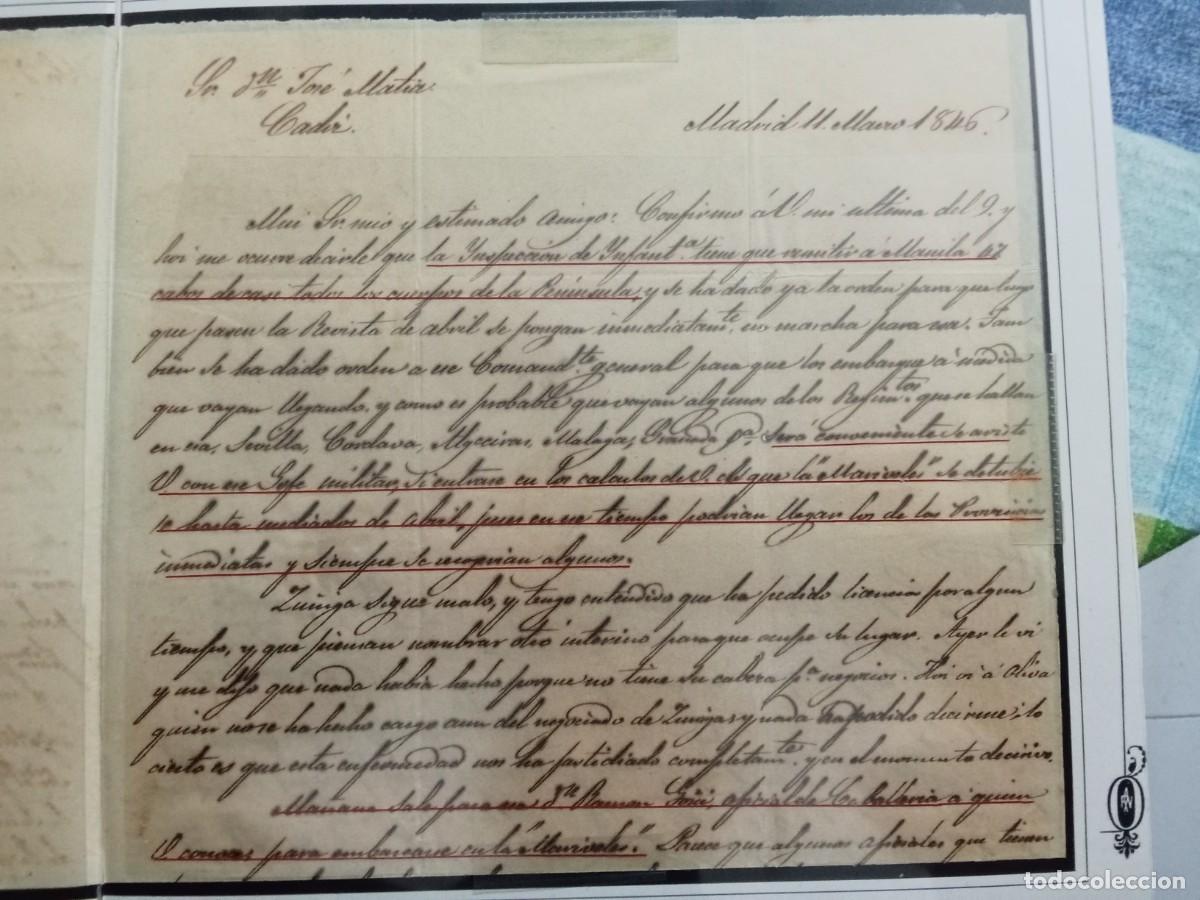 Sr. Dn. José Matia.
Cadiz.
Madrid 11. Marzo 1846.
Mui Sr. mio y estimado amigo: Confirmo á V. mi ultima del 9. y
hoi me ocurre decirle que la Inspeccion de Infanta. tiene que remitir á Manila 47
cabos de casi todos los cuerpos de la Peninsula, y se ha dado ya la orden para que luego
que pasen la Revista de abril se pongan inmediatamte. en marcha para esa. Tam
bien se ha dado orden a ese Comandte. general para que los embarque á medida
que vayan llegando. y como es probable que vayan algunos de los Regimtos. que se hallan
en esa, Sevilla, Cordova, Algeciras, Malaga, Granada será conveniente se aviste
V. con ese Gefe militar, si entrase en los calculos de V. el que la "Mariveles" se detubie
se hasta mediados de Abril, pues en ese tiempo podrian llegar los de las Provincias
inmediatas y siempre se recogerian algunos.
Zuñiga sigue malo, y tengo entendido que ha pedido licencia por algun
tiempo, y que piensan nombrar otro interino para que ocupe su lugar. Ayer le vi
y me dijo que nada habia hecho porque no tiene su cabeza pa. negocios. Hoi vi á Oliva
quien no se ha hecho cargo aun del negociado de Zuñiga y nada ha podido decirme; lo
cierto es que esta enfermedad nos ha fastidiado completamte. y en el momento decisivo.
Mañana sale para esa Dn. Ramon oficial de Caballeria á quien
V. conoce para embarcarse en la "Mariveles". Parece que algunos oficiales que tienen
AN
todocoleccion